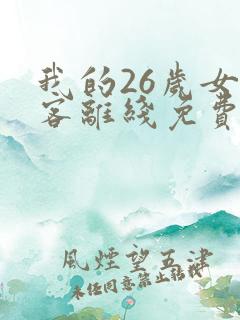 我的26歲女
客離綫免費
風煙望五津
未任同意禁止轉載